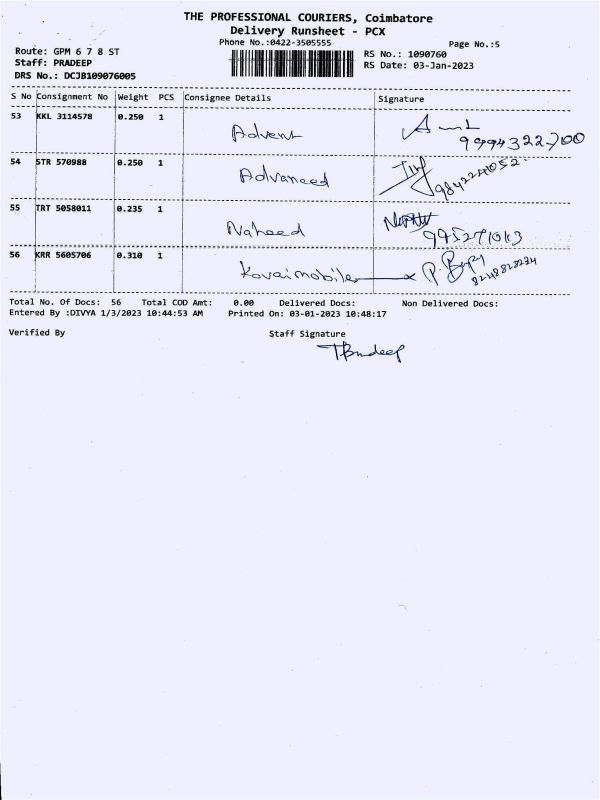 THE PROFESSIONAL COURIERS, Coimbatore
Delivery Runsheet - PCX
Phone No.:0422-3505555
Page No.:5
Route: GPM 6 7 8 ST
RS No.: 1090760
Staff: PRADEEP
RS Date: 03-Jan-2023
DRS No.: DCJB109076005
S No Consignment No Weight PCS Consignee Details Signature
53 KKL 3114578 0.250 1
Advent
9994322700
54 STR 570988 0.250 1
Advanced
9842241052
55 TRT 5058011 0.235 1
Naheed
995271013
56 KRR 5605706 0.310 1
Kovaimobiles
Total No. Of Docs: 56 Total COD Amt: 0.00 Delivered Docs: Non Delivered Docs:
Entered By :DIVYA 1/3/2023 10:44:53 AM Printed On: 03-01-2023 10:48:17
Verified By Staff Signature